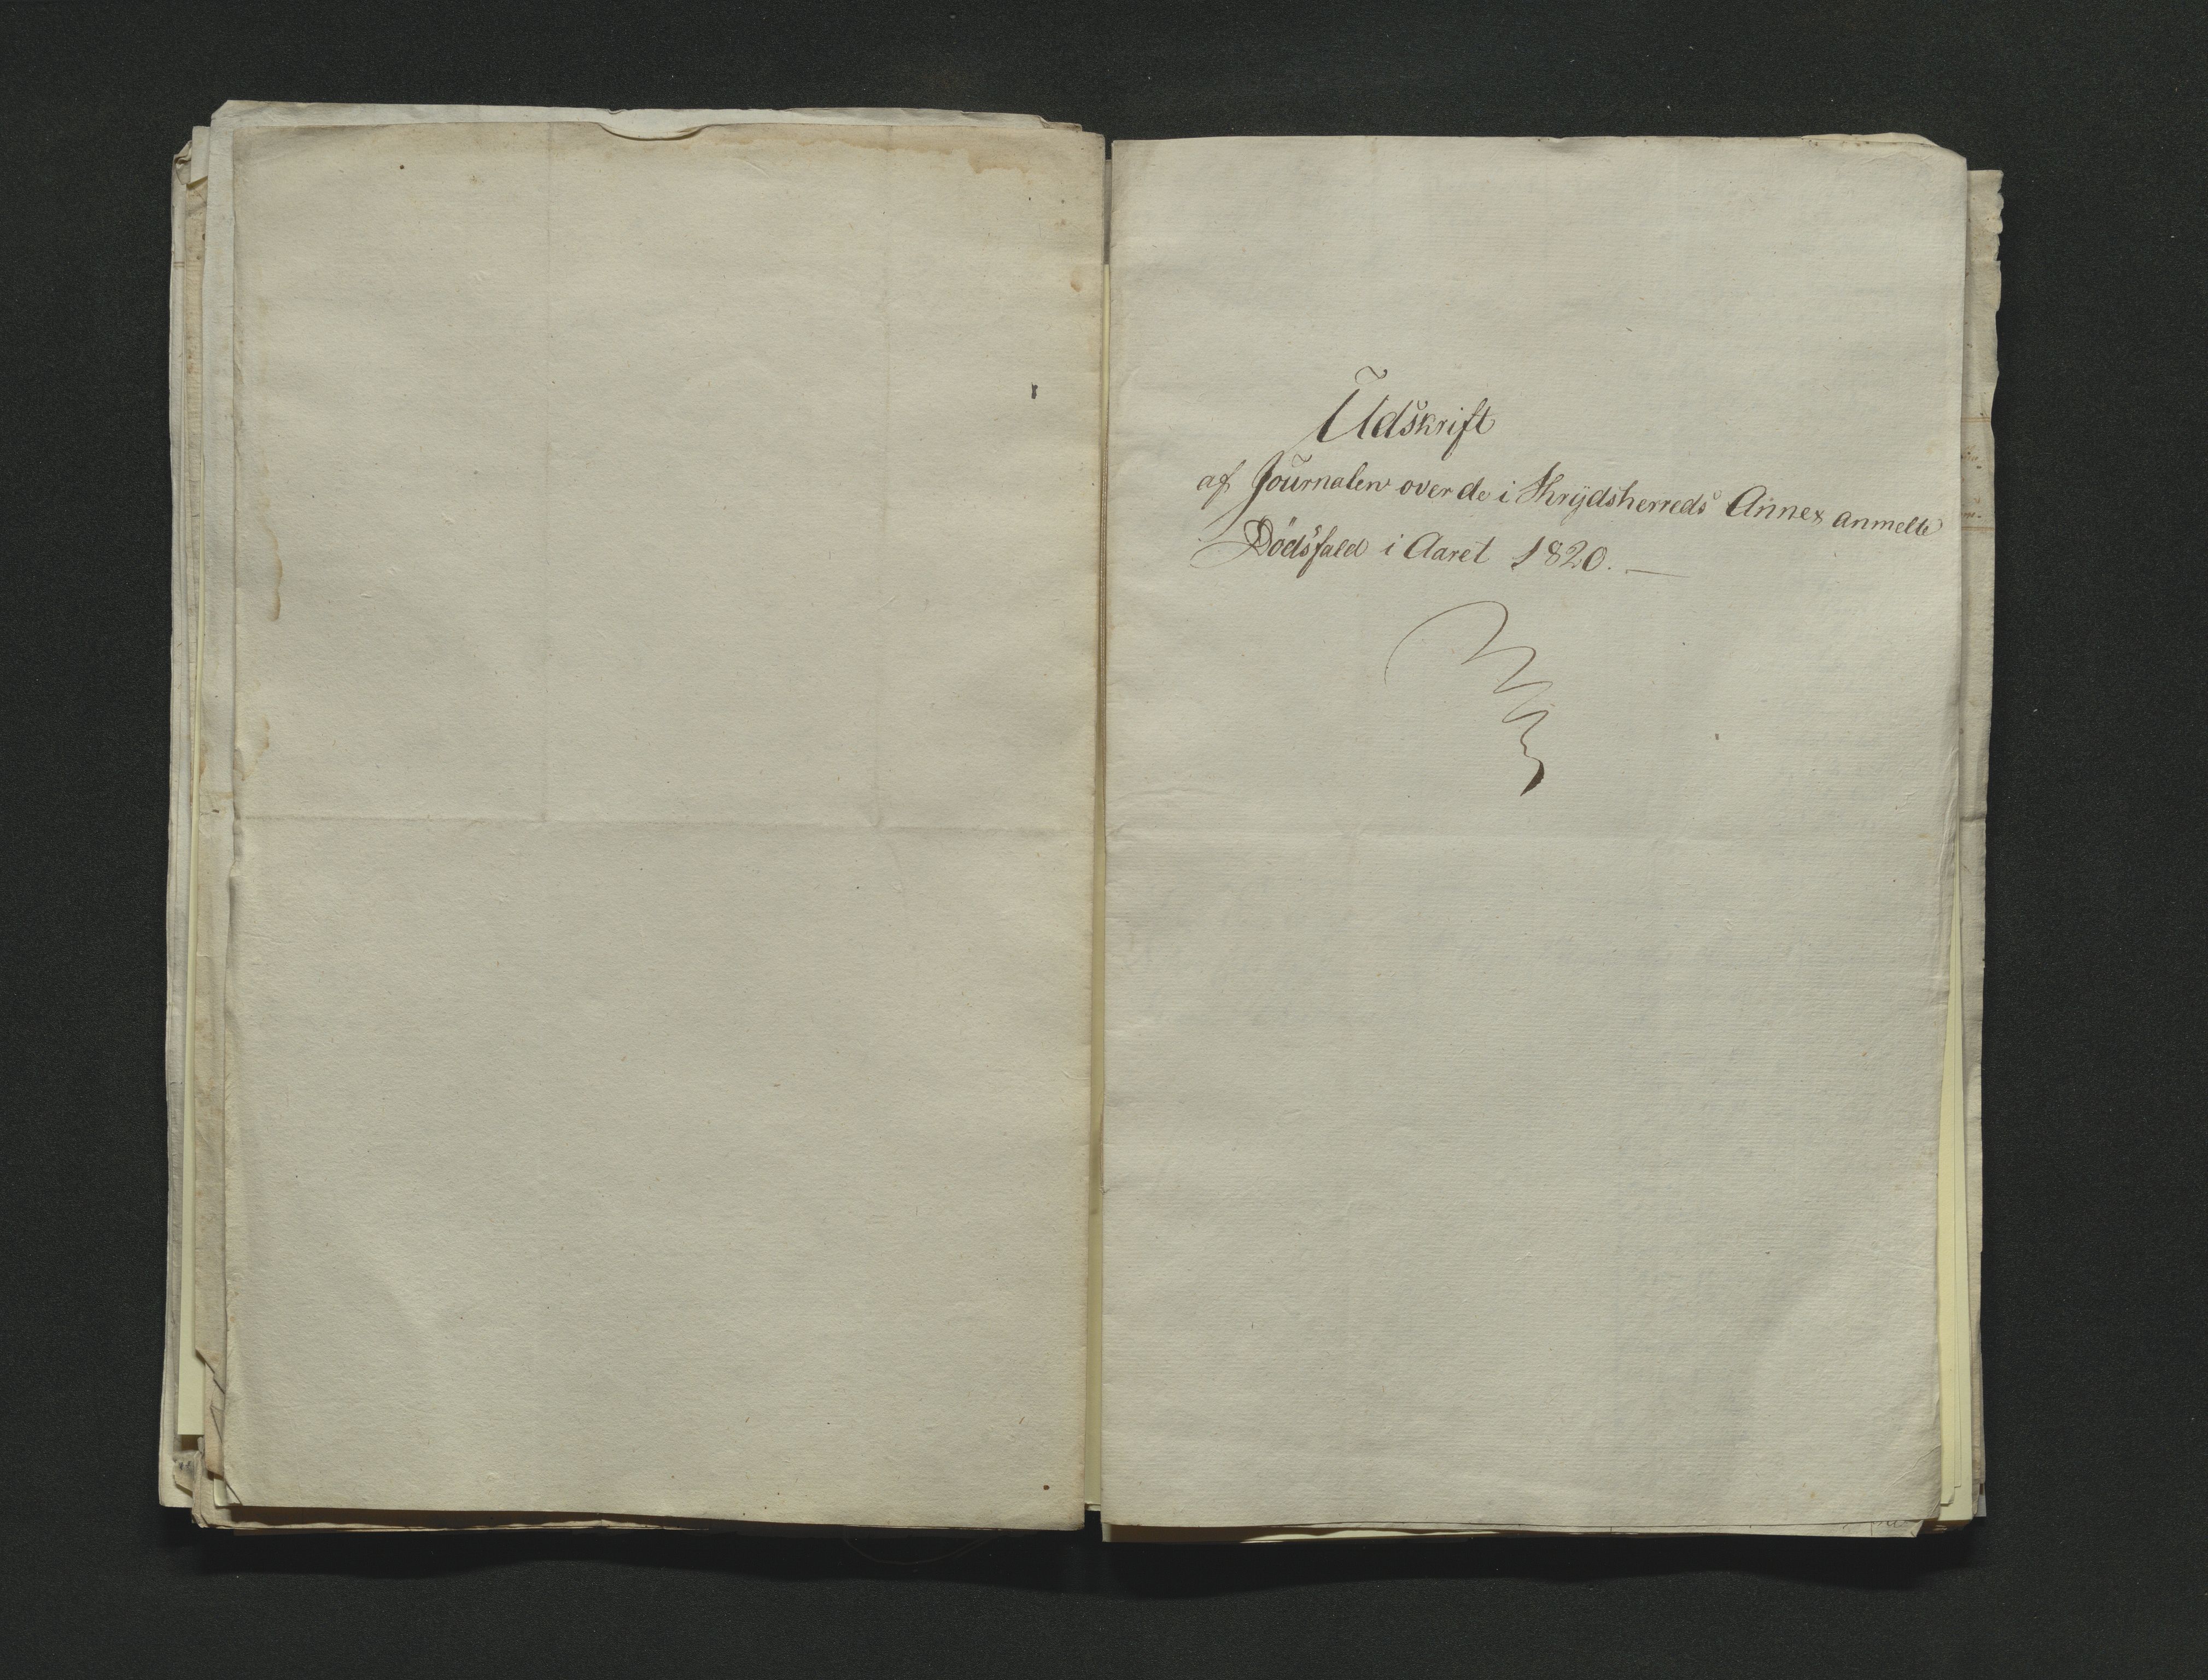 Udskrift
af Journalen over de i Krydsherreds Annex anmelte
Dödsfald i Aaret 1820. —